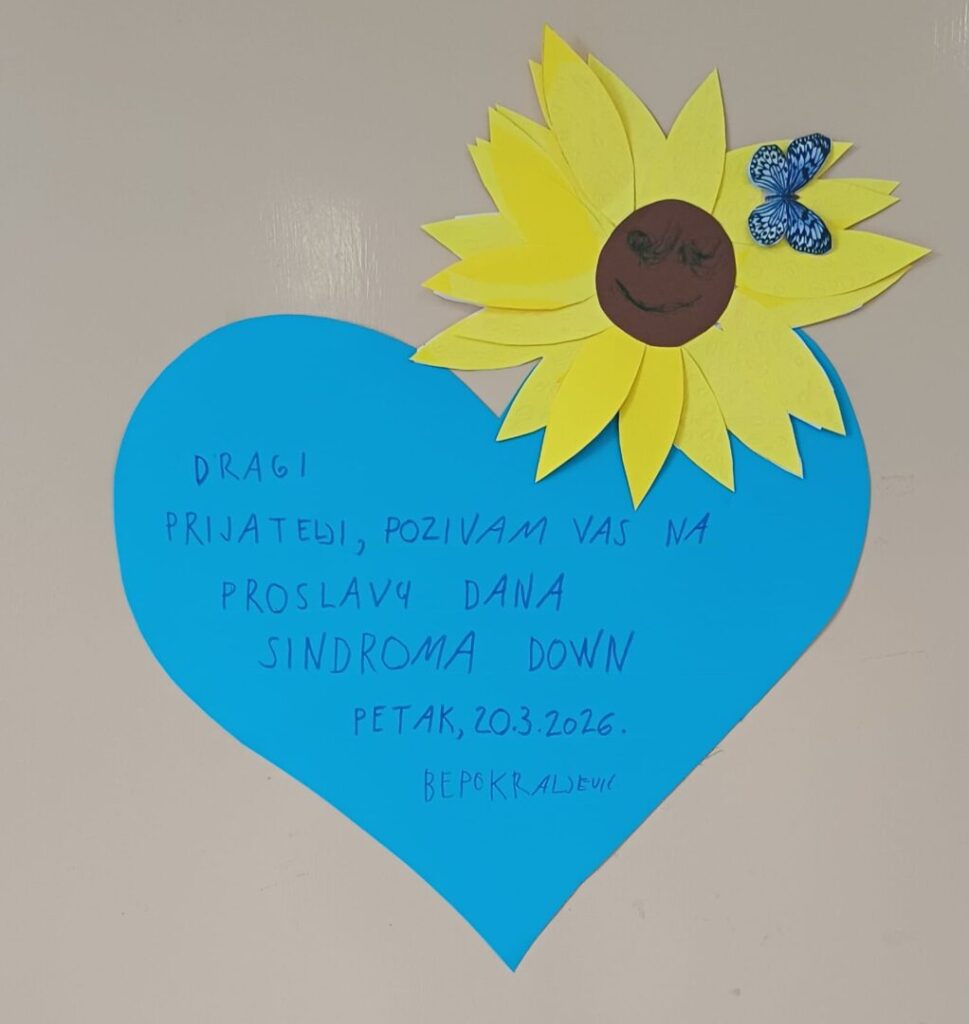 DRAGI
PRIJATELJI, POZIVAM VAS NA
PROSLAVU DANA
SINDROMA DOWN
PETAK, 20.3.2026.
BEPO KRALJEVIĆ